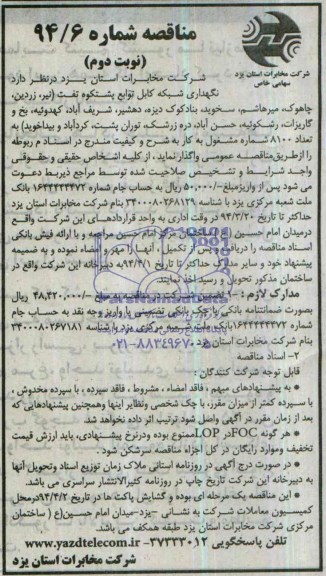 مناقصه شماره ۹۴/۶
(نوبت دوم)
شرکت مخابرات استان یزد
سهامی خاص
شرکت مخابرات استان یزد درنظر دارد
نگهداری شبکه کابل توابع پشتکوه تفت (نیر، زردین،
چاهوک، میرهاشم، سخوید، بنادکوک دیزه، دهشیر، شریف آباد، کهدوئیه، بخ و
گاریزات، رشکوئیه، حسن آباد، دره زرشک، توران پشت، کردآباد و بیداخوید) به
تعداد ۸۱۰۰ شماره مشغول به کار به شرح و کیفیت مندرج در اسناد مربوطه
را ازطریق مناقصه عمومی واگذار نماید، از کلیه اشخاص حقیقی و حقوقی
واجد شرایط و تشخیص صلاحیت شده توسط مراجع ذیربط دعوت
می شود پس از واریز مبلغ ۵۰۰/۰۰۰ ریال به حساب جام شماره ۱۶۴۴۴۴۴۴۷۲ بانک
ملت شعبه مرکزی یزد با شناسه ۳۴۰۰۰۸۰۲۶۸۱۲۹ بنام شرکت مخابرات استان یزد
حداکثر تا تاریخ ۹۴/۳/۲۰ در وقت اداری به واحد قراردادهای این شرکت واقع
درمیدان امام حسین (ع) ساختمان مرکز امام حسین مراجعه و با ارائه فیش بانکی
اسناد مناقصه را دریافت و پس از تکمیل، آنها را مهر و امضاء نموده و به ضمیمه
پیشنهاد خود و سایر مدارک حداکثر تا تاریخ ۹۴/۴/۱ به دبیرخانه این شرکت واقع در
ساختمان مذکور تحویل و رسید اخذ نمایند.
مدارک لازم: ۱- تضمین شرکت در مناقصه به مبلغ ۴۸,۴۲۰,۰۰۰/- ریال
بصورت ضمانتنامه بانکی یا چک بانکی تضمینی یا واریز وجه نقد به حساب جام
شماره ۱۶۴۴۴۴۴۳۷۲ بانک ملت شعبه مرکزی یزد با شناسه ۳۴۰۰۰۸۰۲۶۷۱۸۱
بنام شرکت مخابرات استان یزد
۰۲۱-۸۸۳۴۹۶۷۰
۲- اسناد مناقصه
قابل توجه شرکت کنندگان:
به پیشنهادهای مبهم، فاقد امضاء، مشروط، فاقد سپرده، با سپرده مخدوش،
با سپرده کمتر از میزان مقرر، با چک شخصی ونظایر اینها وهمچنین پیشنهادهایی که
بعد از زمان مقرر در آگهی واصل شود ترتیب اثر داده نخواهد شد.
هر گونه FOC در LOP ممنوع بوده ودرنرخ پیشنهادی، باید ارزش قیمت
تخفیف وموارد رایگان در کل اجزاء مناقصه سرشکن شود.
در صورت درج آگهی در روزنامه استانی ملاک زمان توزیع اسناد وتحویل آنها
به دبیرخانه این شرکت تاریخ چاپ در روزنامه کثیرالانتشار سراسری می باشد.
این مناقصه یک مرحله ای بوده و گشایش پاکت ها در تاریخ ۹۴/۴/۲ درمحل
کمیسیون معاملات شرکت به نشانی -یزد-میدان امام حسین(ع) ساختمان
مرکزی شرکت مخابرات استان یزد طبقه همکف می باشد.
تلفن پاسخگویی ۳۷۲۳۳۰۱۲- www.yazdtelecom.ir
شرکت مخابرات استان یزد